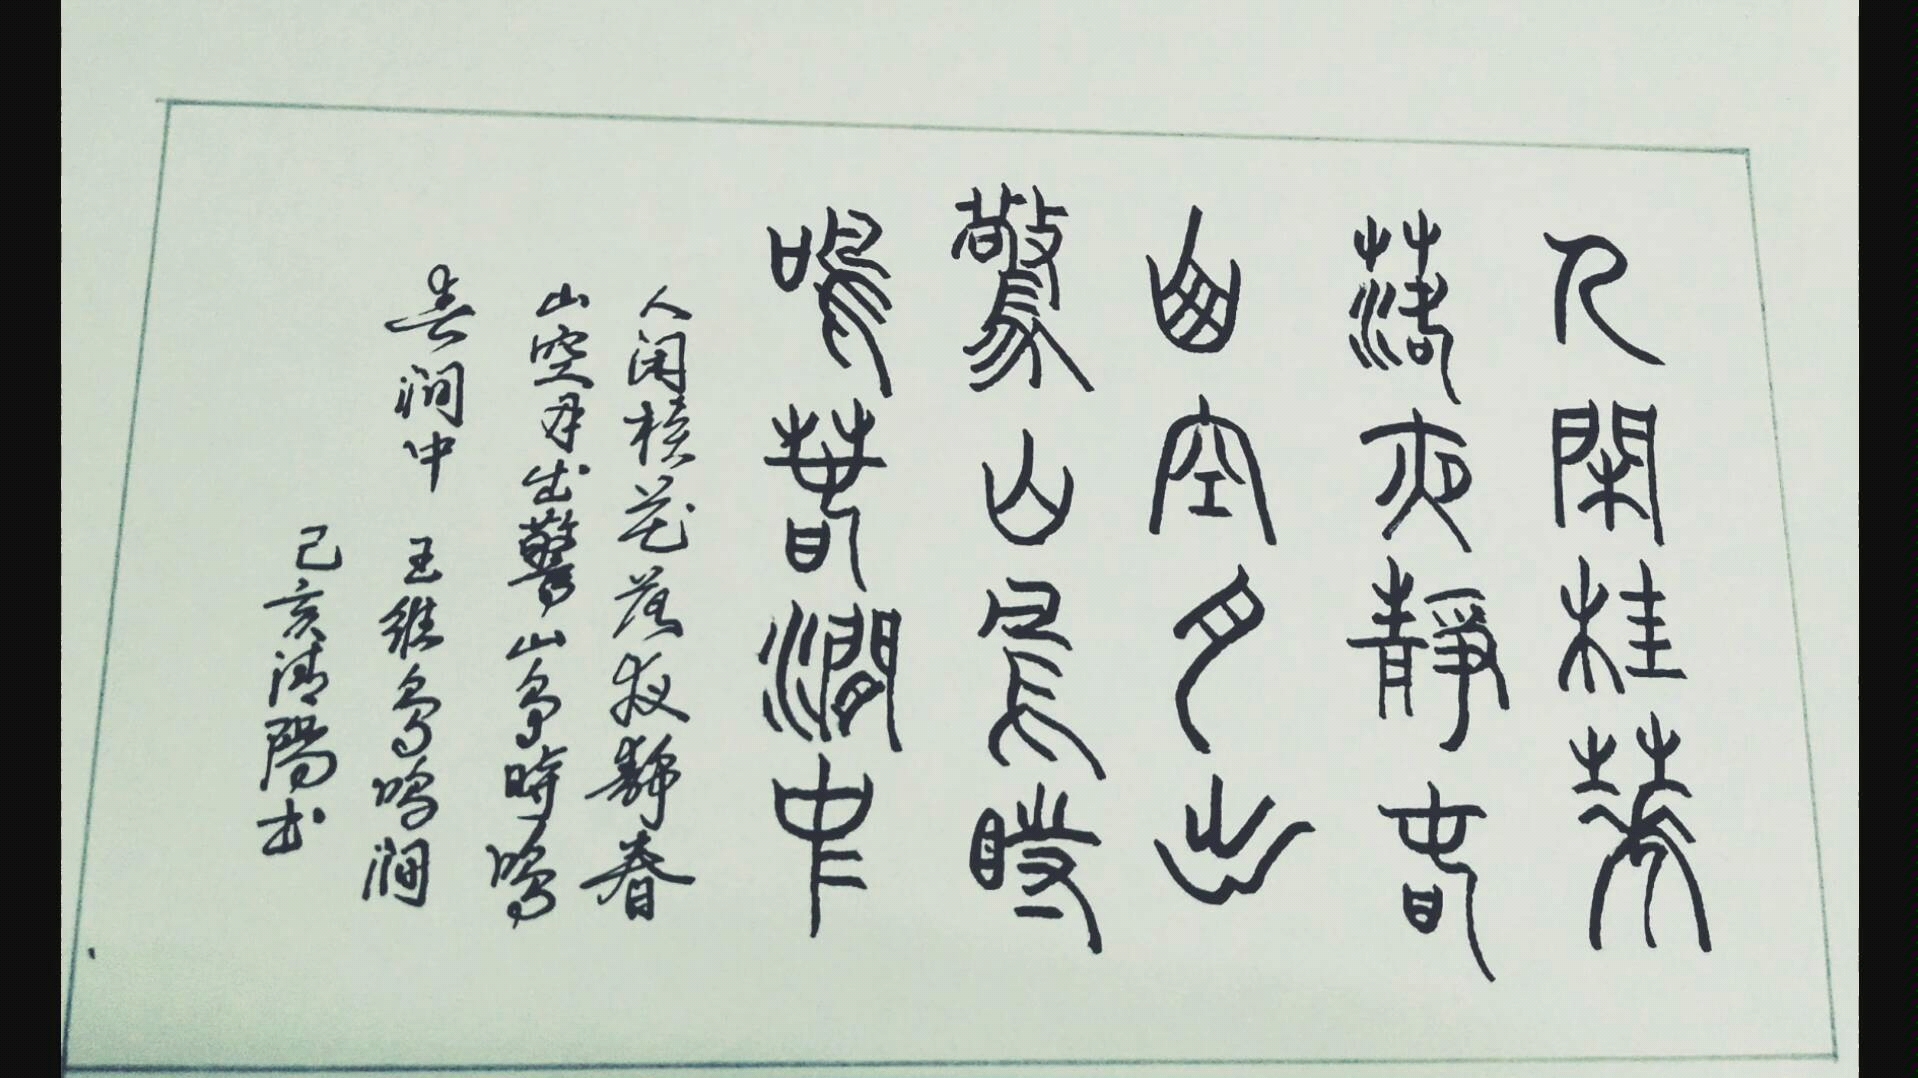 人閑桂華
落夜靜春
山空月出
驚山鳥時
鳴春澗中
人闲桂花落夜静春
山空月出驚山鸟時鸣
春涧中 王維鸟鸣涧
己亥清陽书